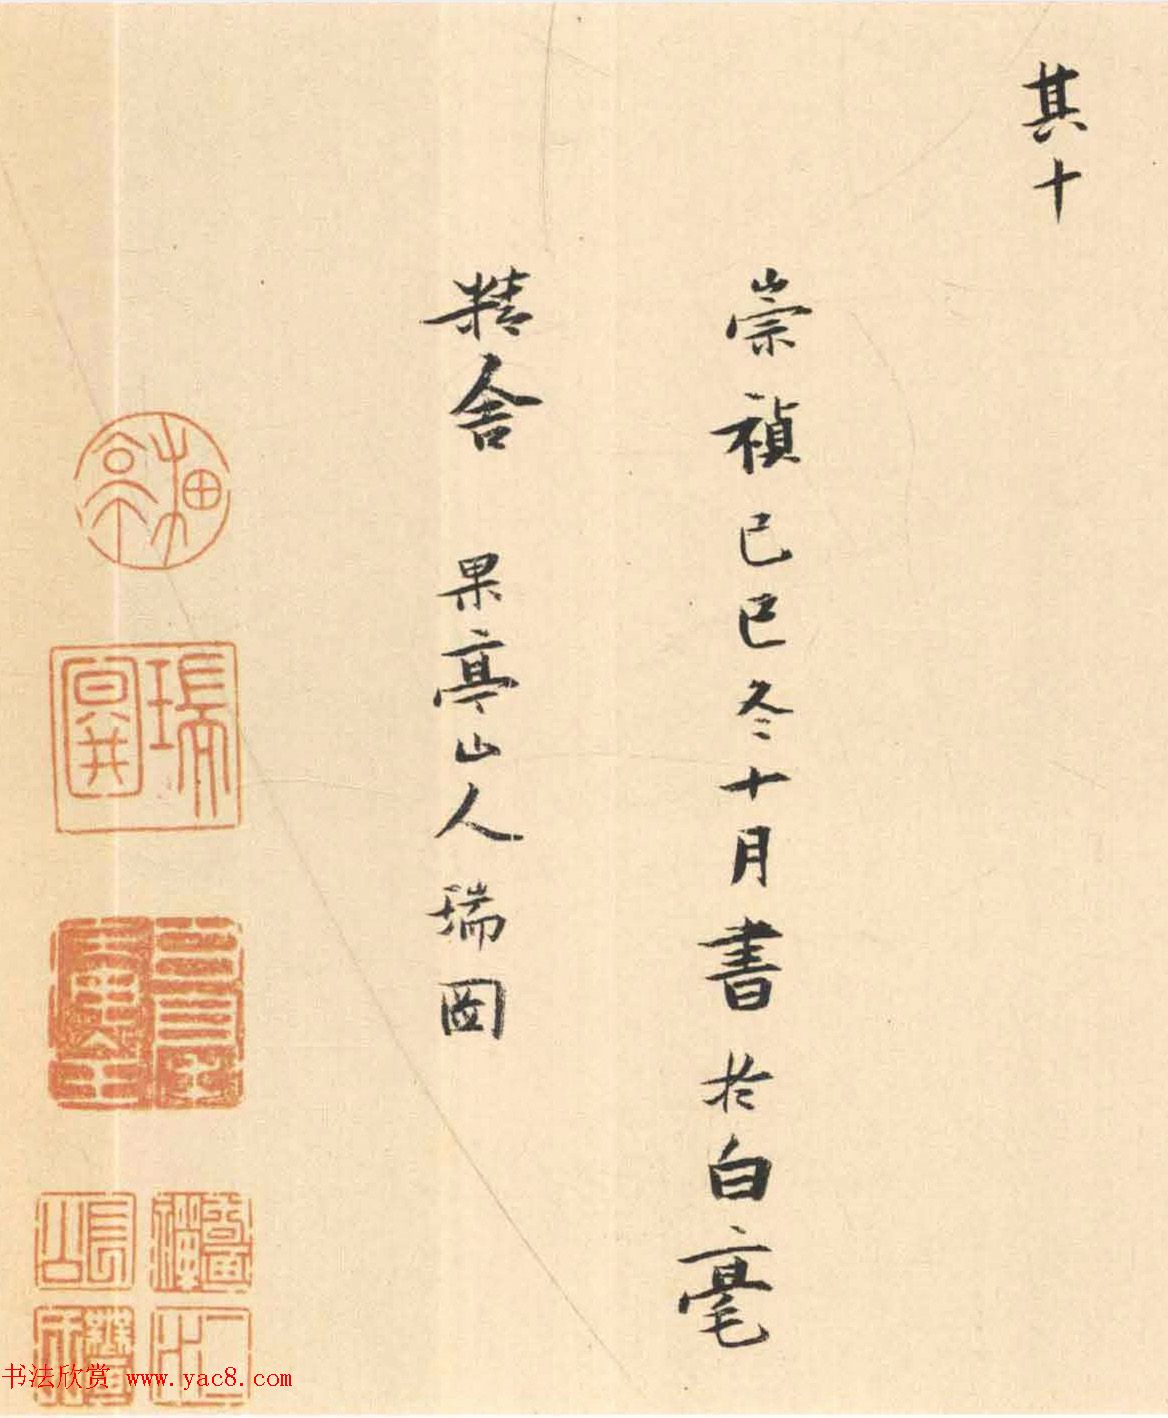 其十
崇禎己巳冬十月書於白毫
精舍 果亭山人瑞图
瑞圖
書法欣赏 www.yac8.com